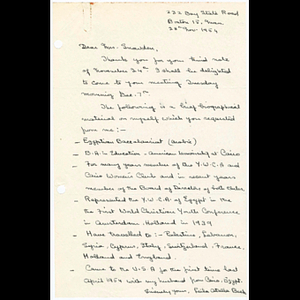 222 Bay State Road
Boston 15, Mass
28th Nov. 1954
Dear Mrs. Snowden,
Thank you for your kind note
of November 24th. I shall be delighted
to come to your meeting Tuesday
morning Dec. 7th.
The following is a brief biographical
material on myself which you requested
from me :-
- Egyptian Baccalaureat (Arabic)
- B.A. in Education - American University at Cairo
- For many years member of the Y.W.C.A. and
Cairo Women's Club and in recent years
member of the Board of Directors of both clubs.
- Represented the Y.W.C.A. of Egypt in the
the First World Christian Youth Conference
in Amsterdam, Holland in 1939
- Have travelled to :- Palestine, Lebanon,
Syria, Cyprus, Italy, Switzerland, France,
Holland and England.
- Came to the U.S.A. for the first time last
April 1954 with my husband from Cairo, Egypt.
Sincerely yours,